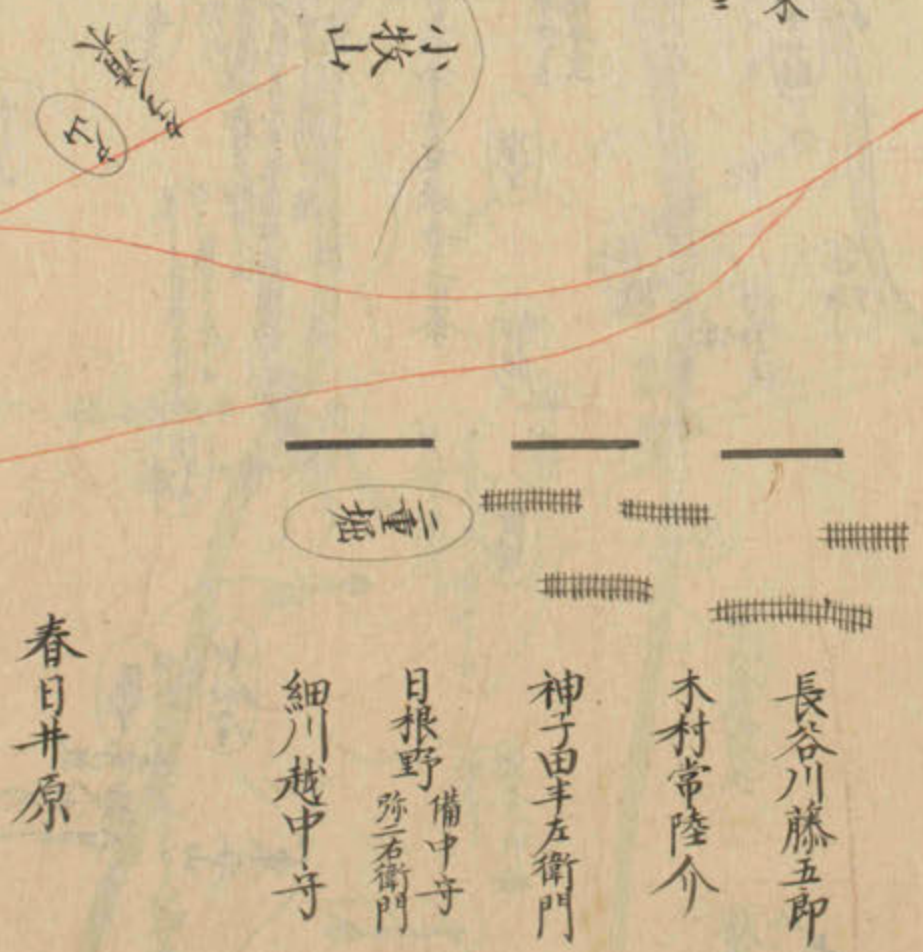 小牧山
二重堀
長谷川藤五郎
木村常陸介
神子田半左衛門
日根野
備中守
弥二右衛門
細川越中守
春日井原